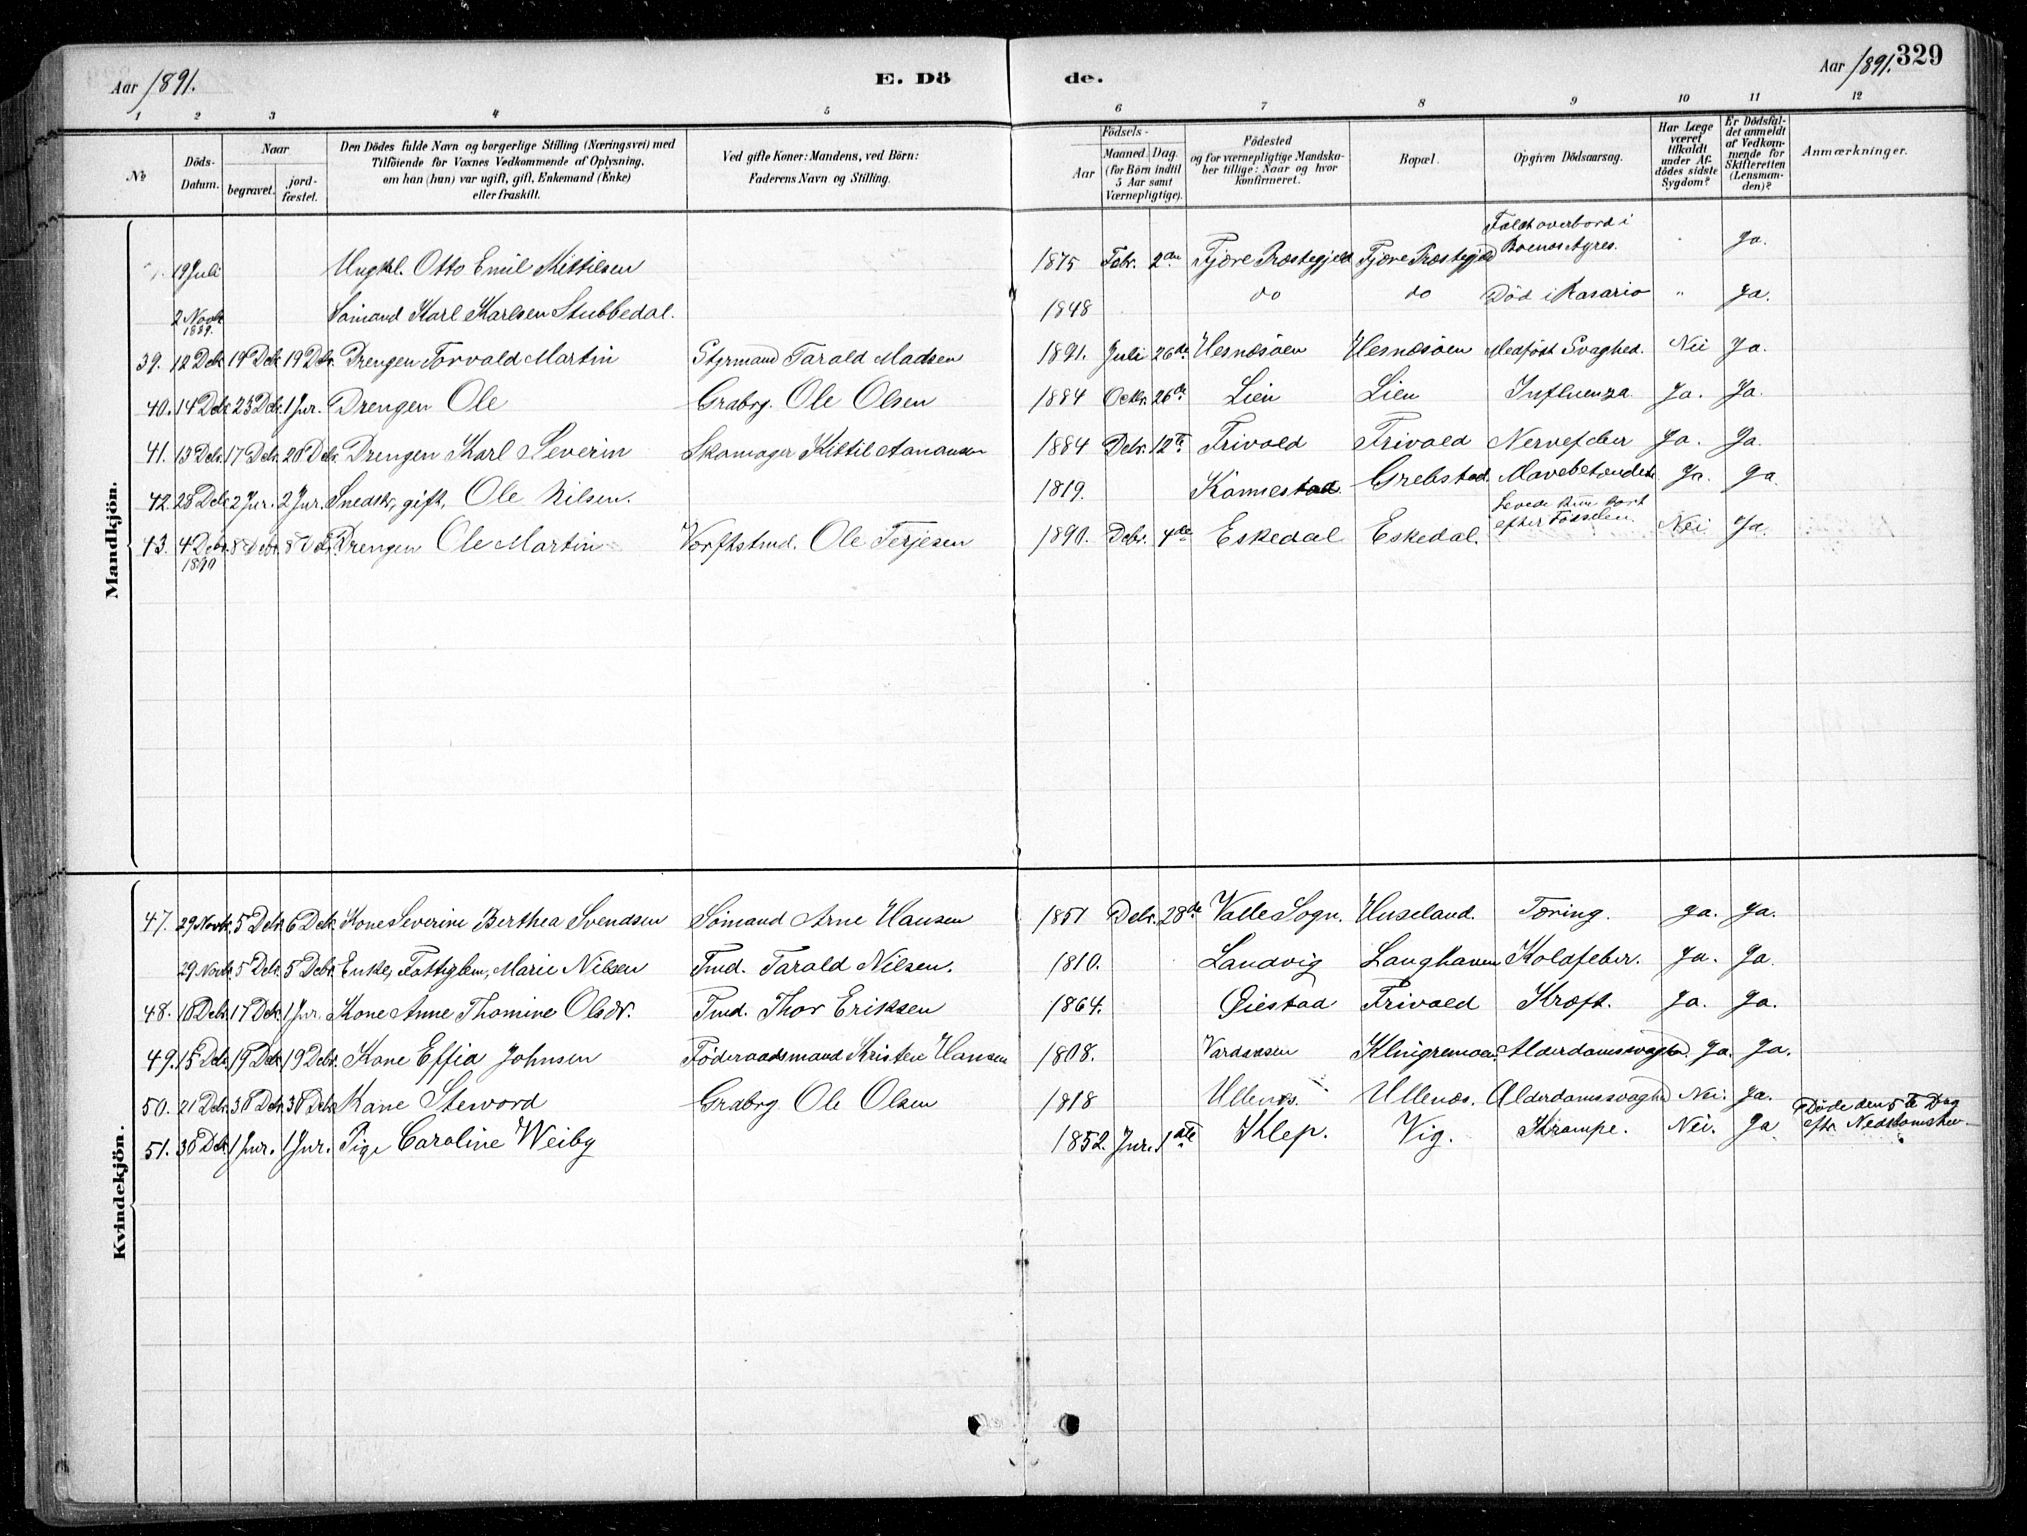 Aar 1891.
E. Dö
de.
Aar 1891.
329
1 2 3 4 5 6 7 8 9 10 11 12
№
Döds-
Datum.
Naar
begravet.
jord-
fæstet.
Den Dödes fulde Navn og borgerlige Stilling (Næringsvei) med
Tilföiende for Voxnes Vedkommende af Oplysning,
om han (hun) var ugift, gift, Enkemand (Enke)
eller fraskilt.
Ved gifte Koner: Mandens, ved Börn:
Faderens Navn og Stilling.
Födsels-
Aar
Maaned. Dag.
(for Börn indtil
5 Aar samt
Værnepligtige).
Födested
og for værnepligtige Mandska-
ber tillige: Naar og hvor
konfirmeret.
Bopæl.
Opgiven Dödsaarsag.
Har Læge
været
tilkaldt
under Af-
dödes sidste
Sygdom?
Er Dödsfal-
det anmeldt
af Vedkom-
mende for
Skifteretten
(Lensman-
den)?
Anmærkninger.
Mandkjön.
19 Juli Ungkl. Otto Emil Kittilsen 1875 Febr. 2den Fjære Præstegjeld Fjære Præstegjeld Faldt overbord i Buenos Ayres. Ja.
2 Novbr 1889. Sömand Karl Karlsen Stubbedal. 1848 do do Död i Rosario " Ja.
39. 12 Debr 19 Debr 19 Debr. Drengen Torvald Martin Styrmand Tarald Madsen 1891. Juli 26de Hesnæsöen Hesnæsöen Medfödt Svaghed. Nei Ja.
40. 14 Debr 23 Debr. 1 Jnr. Drengen Ole Grabrg. Ole Olsen 1884 Octbr. 26de Lien Lien Influenza Ja. Ja.
41. 13 Debr. 17 Debr. 20 Debr. Drengen Karl Severin Skomager Kittil Aanonsen 1884 Debr. 12te Frivold Frivold Nervefeber Ja. Ja.
42. 28 Debr 2 Jnr. 2 Jnr. Snedkr, gift, Ole Nilsen. 1819. Kannestad Grebstad. Mavebetændelse Ja. Ja.
13. 4 Debr. 1890 8 Debr. 8 Debr. Drengen Ole Martin Verftstmd. Ole Terjesen 1890. Debr. 4de Eskedal Eskedal. Levede kun kort efter Födselen. Nei Ja.
Kvindekjön.
47. 29 Novbr. 5 Debr. 6 Debr. Kone Severine Berthea Svendsen Sömand Arne Hansen 1851 Debr. 28de Valle Sogn. Huseland. Tæring. Ja. Ja.
29 Novbr. 5 Debr. 5 Debr. Enke, Fattiglem, Marie Nilsen Tmd. Tarald Nilsen. 1810. Landvig Langhaven Koldfeber. Ja. Ja.
48. 10 Debr. 17 Debr. 1 Jnr. Kone Anne Thomine Olsdr. Tmd. Thor Eriksen 1864. Öiestad Frivold Kræft. Ja. Ja.
49. 15 Debr. 19 Debr. 19 Debr. Kone Effia Johnsen Föderaadsmand Kristen Hansen 1808. Vardaasen Klingremoen Alderdomssvaghed. Ja. Ja.
50. 21 Debr. 30 Debr. 30 Debr. Kone Steword Grabrg Ole Olsen 1818 Ullenæs. Ullenæs. Alderdomssvaghed Nei. Ja.
51. 30 Debr 1 Jnr. 1 Jnr. Pige Caroline Weiby 1852. Jnr. 1ste Klep. Vig. Krampe. Nei. Ja Döde den 5te Dag eftr Nedkomsten.